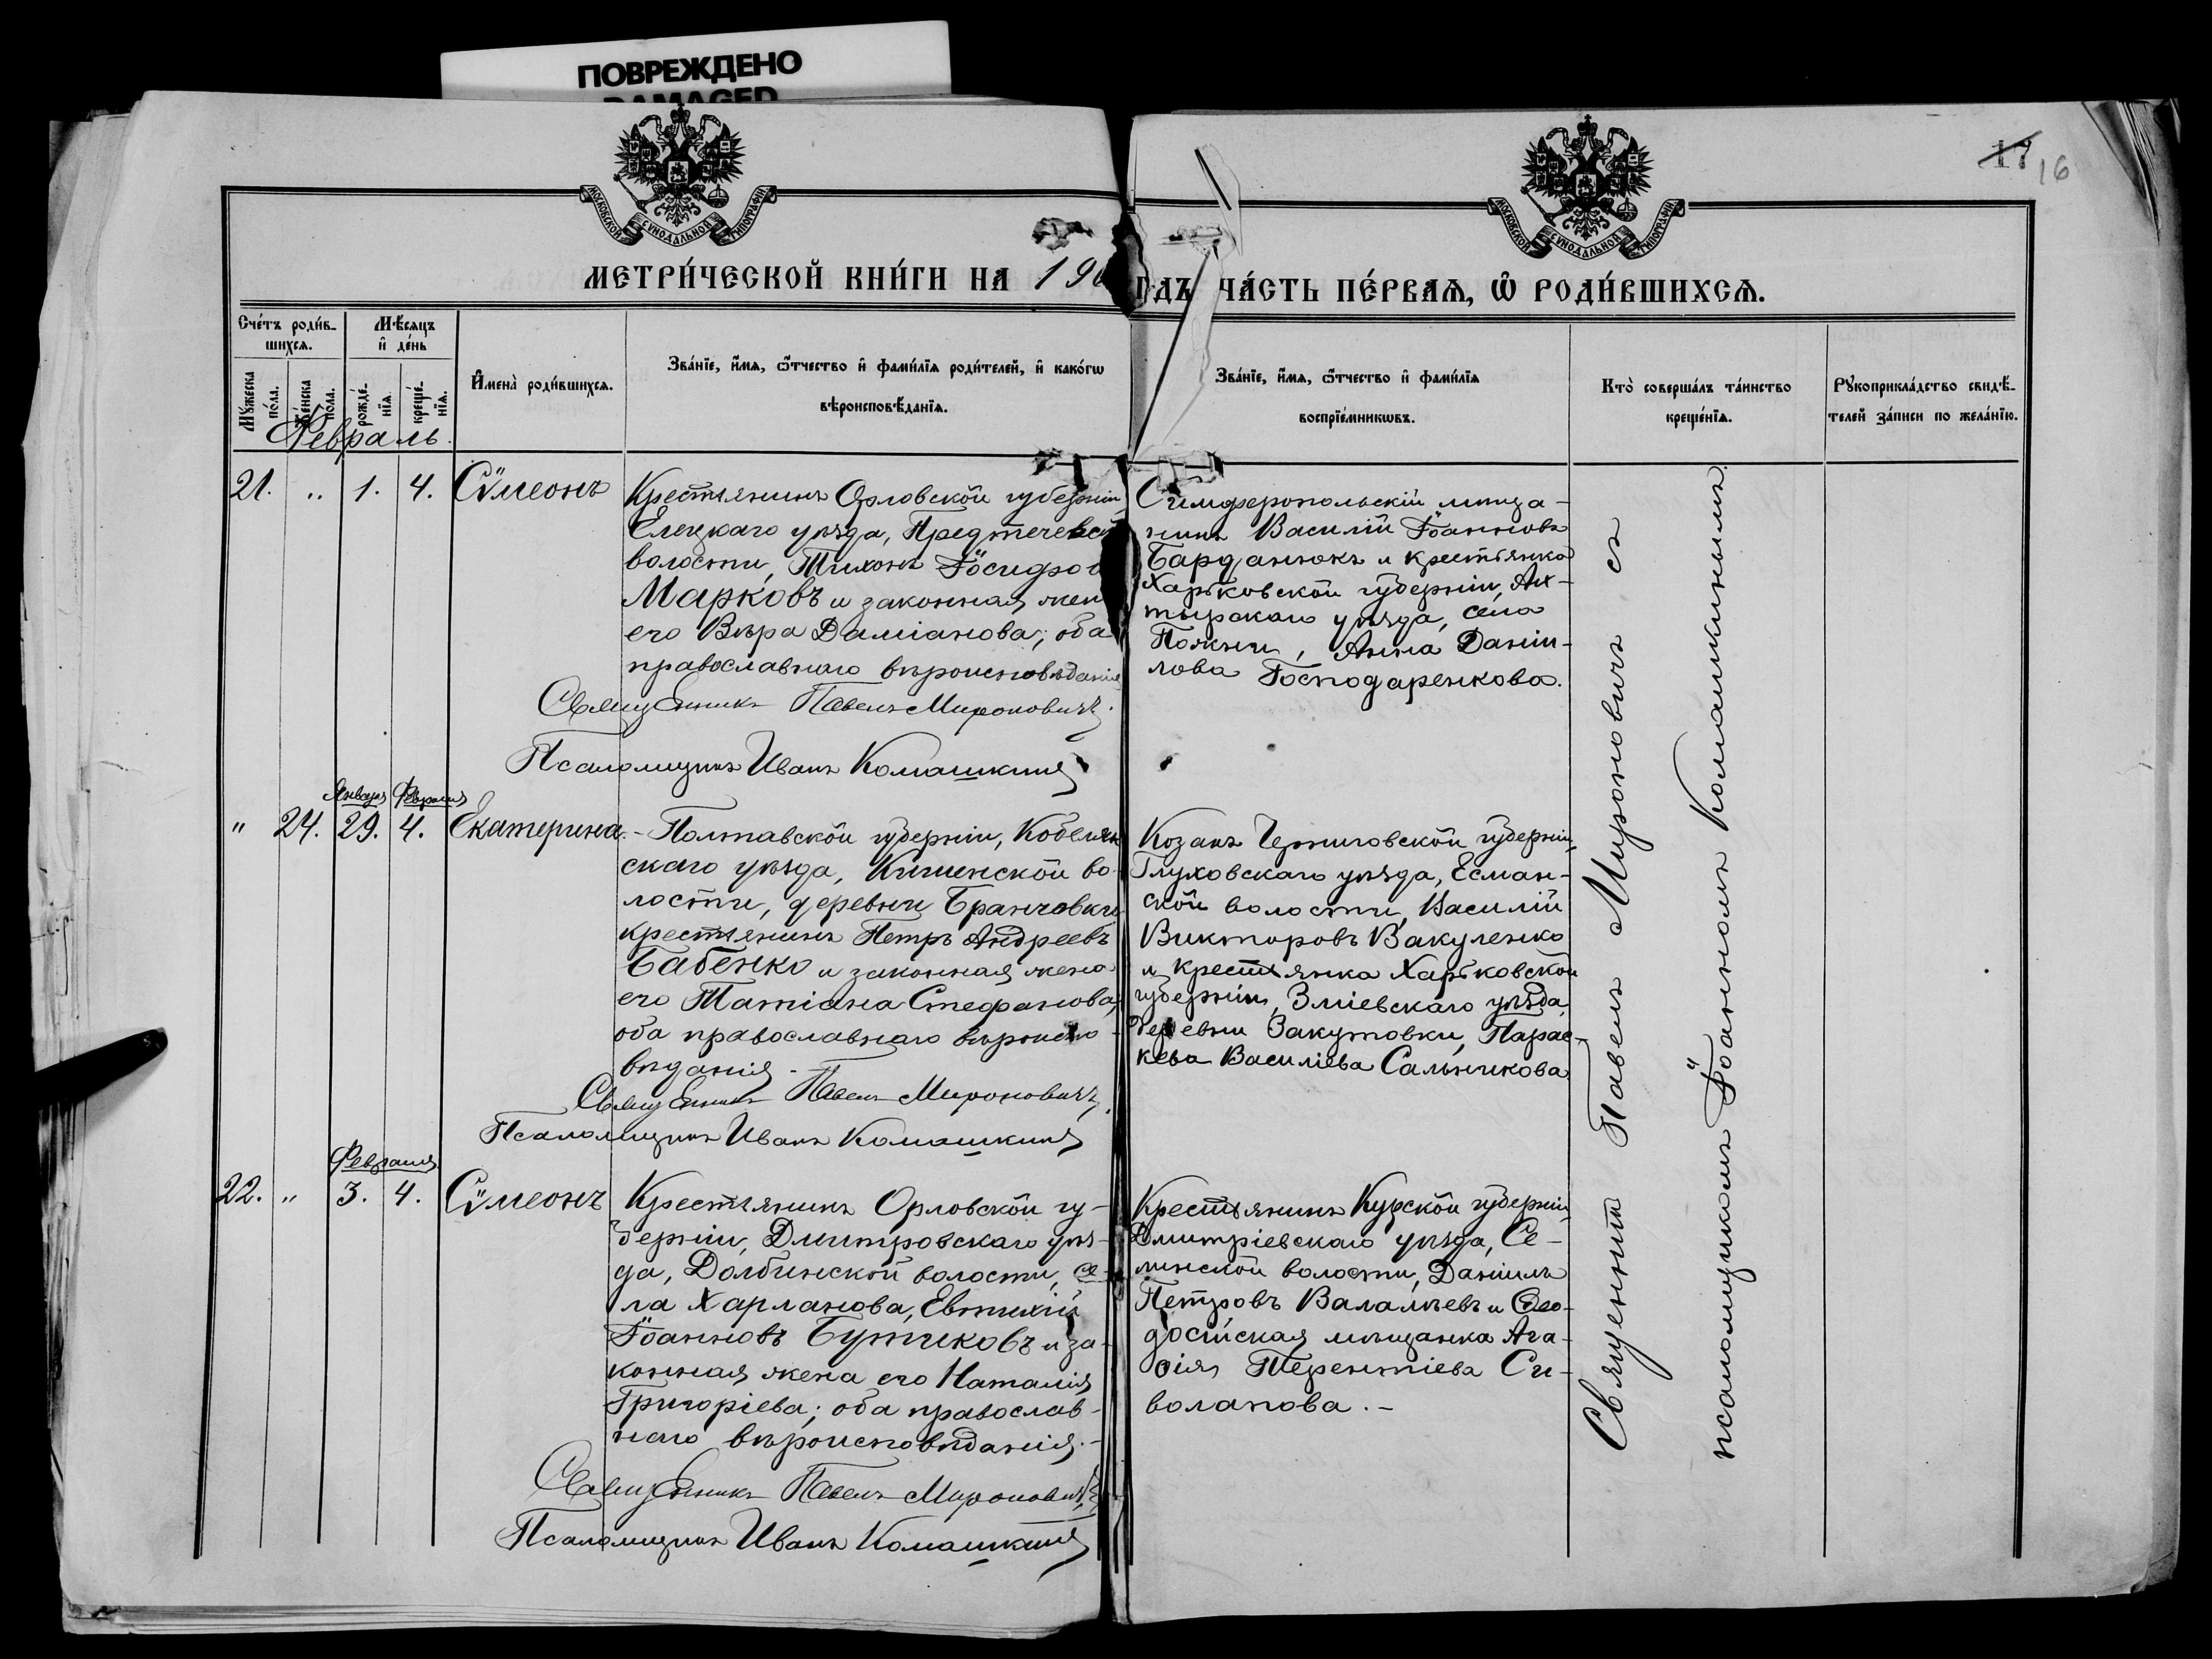 ПОВРЕЖДЕНО
DAMAGED
17 16
МОСКОВСКОЙ СѴНОДАЛЬНОЙ ТИПОГРАФІИ
МОСКОВСКОЙ СѴНОДАЛЬНОЙ ТИПОГРАФІИ
МЕТРИ́ЧЕСКОЙ КНИ́ГИ НА 190
ГДЪ ЧА́СТЬ ПЕ́РВАѦ, Ѽ РОДИ́ВШИХСѦ.
Сче́тъ роди́в-
шихсѧ.
Мѣ́сѧцъ
и҆ де́нь
Мꙋ́жеска
по́ла.
Же́нска
по́ла.
рожде́-
нїѧ.
креще́-
нїѧ.
И҆мена̀ роди́вшихсѧ.
Зва́нїе, и҆́мѧ, ѻ҆́тчество и҆ фами́лїѧ роди́телей, и҆ како́гѡ
вѣроисповѣ́данїѧ.
Зва́нїе, и҆́мѧ, ѻ҆́тчество и҆ фами́лїѧ
воспрїе́мникѡвъ.
Кто̀ соверша́лъ та́инство
креще́нїѧ.
Рꙋкоприкла́дство свидѣ́-
телей за́писи по жела́нїю.
Февраль.
21. „ 1. 4. Сѷмеонъ
Крестьянинъ Орловской губерніи
Елецкаго уѣзда, Предтечевс
волости, Тихонъ Іосифов
Марковъ и законная жен
его Вѣра Даміанова; оба
православнаго вѣроисповѣданія
Священникъ Павелъ Мироновичъ.
Псаломщикъ Иванъ Комашкинъ
Симферопольскій мѣща-
нинъ Василій Іоанновъ
Барданюкъ и крестьянка
Харьковской губерніи, Ах-
тырскаго уѣзда, села
Пожни, Анна Даніи-
лова Господаренкова.
Января Февраля
„ 24. 29. 4. Екатерина.
- Полтавской губерніи, Кобеляк
скаго уѣзда, Кишенской во-
лости, деревни Бранчовки
крестьянинъ Петръ Андреевъ
Бабенко и законная жена
его Татіана Стефанова,
оба православнаго вѣроиспо-
вѣданія.-
Священникъ Павелъ Мироновичъ.
Псаломщикъ Иванъ Комашкинъ
Козакъ Черниговской губерніи,
Глуховскаго уѣзда, Есман-
ской волости, Василій
Викторовъ Вакуленко
и крестьянка Харьковской
губерніи, Зміевскаго уѣзда,
деревни Закутовки, Парас-
кева Василіева Сальникова
Февраля
22. „ 3. 4. Сѷмеонъ
Крестьянинъ Орловской гу-
берніи, Дмитровскаго уѣз-
да, Долбинской волости, се-
ла Харланова, Евтихій
Іоанновъ Бутиковъ и за-
конная жена его Наталія
Григоріева; оба православ-
наго вѣроисповѣданія.-
Священникъ Павелъ Мироновичъ
Псаломщикъ Иванъ Комашкинъ
Крестьянинъ Курской губерніи,
Дмитріевскаго уѣзда, Се-
линской волости, Даніилъ
Петровъ Валалѣевъ и Ѳео-
досійская мѣщанка Ага-
ѳія Терентіева Си-
волапова.-
Священникъ Павелъ Мироновичъ съ
псаломщикомъ Іоанномъ Комашкинымъ.